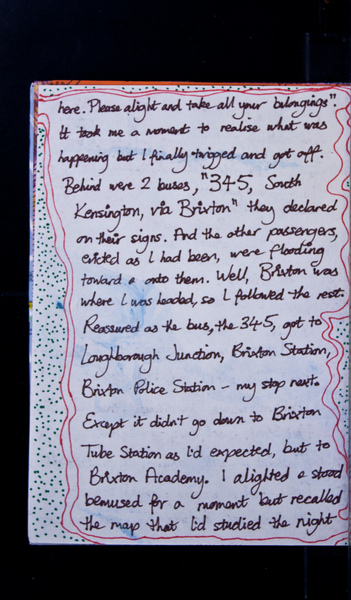 here. Please alight and take all your belongings".
It took me a moment to realise what was
happening but I finally twigged and got off.
Behind were 2 buses, "345, South
Kensington, via Brixton" they declared
on their signs. And the other passengers,
evicted as I had been, were flooding
toward & onto them. Well, Brixton was
where I was headed, so I followed the rest.
Reassured as the bus, the 345, got to
Loughborough Junction, Brixton Station,
Brixton Police Station - my stop next.
Except it didn't go down to Brixton
Tube Station as I'd expected, but to
Brixton Academy. I alighted & stood
bemused for a moment but recalled
the map that I'd studied the night